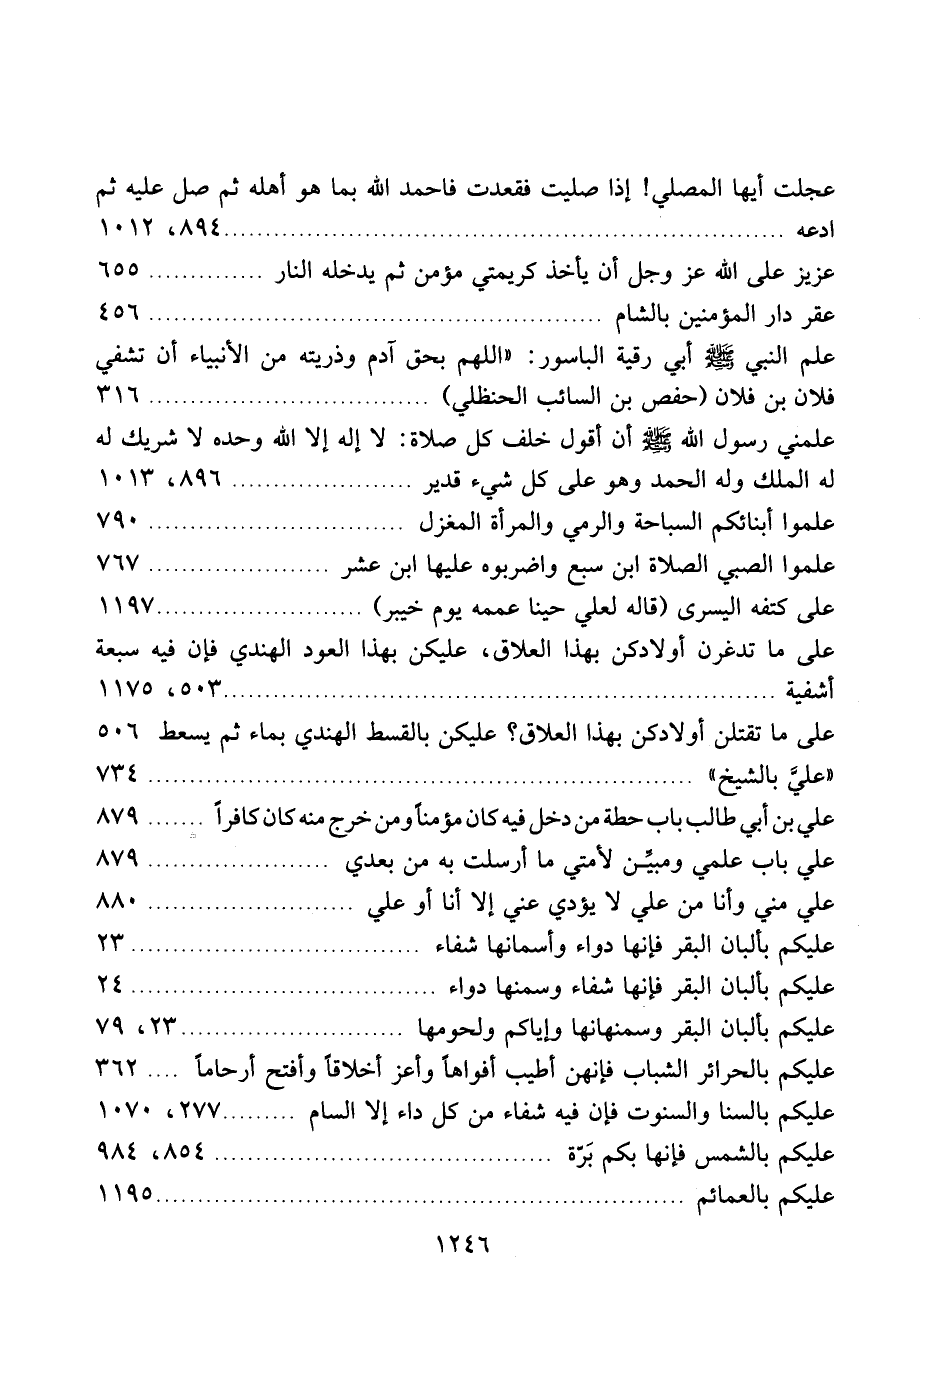 عجلت أيها المصلي! إذا صليت فقعدت فاحمد الله بما هو أهله ثم صل عليه ثم
ادعه ................................ ٨٩٤، ١٠١٢
عزيز على الله عز وجل أن يأخذ كريمتي مؤمن ثم يدخله النار .............. ٦٥٥
عقر دار المؤمنين بالشام ................................ ٤٥٦
علم النبي ﷺ أبي رقية الباسور: «اللهم بحق آدم وذريته من الأنبياء أن تشفي
فلان بن فلان (حفص بن السائب الحنظلي) ................................ ٣١٦
علمني رسول الله ﷺ أن أقول خلف كل صلاة: لا إله إلا الله وحده لا شريك له
له الملك وله الحمد وهو على كل شيء قدير ...................... ٨٩٦، ١٠١٣
علموا أبنائكم السباحة والرمي والمرأة المغزل ................................ ٧٩٠
علموا الصبي الصلاة ابن سبع واضربوه عليها ابن عشر ...................... ٧٦٧
على كتفه اليسرى (قاله لعلي حينا عممه يوم خيبر) ......................... ١١٩٧
على ما تدغرن أولادكن بهذا العلاق، عليكن بهذا العود الهندي فإن فيه سبعة
أشفية ................................ ٥٠٣، ١١٧٥
على ما تقتلن أولادكن بهذا العلاق؟ عليكن بالقسط الهندي بماء ثم يسعط ٥٠٦
«عليَّ بالشيخ» ................................ ٧٣٤
علي بن أبي طالب باب حطة من دخل فيه كان مؤمناً ومن خرج منه كان كافراً ....... ٨٧٩
علي باب علمي ومبيِّن لأمتي ما أرسلت به من بعدي ...................... ٨٧٩
علي مني وأنا من علي لا يؤدي عني إلا أنا أو علي ......................... ٨٨٠
عليكم بألبان البقر فإنها دواء وأسمانها شفاء ................................ ٢٣
عليكم بألبان البقر فإنها شفاء وسمنها دواء ................................ ٢٤
عليكم بألبان البقر وسمنهانها وإياكم ولحومها ........................... ٢٣، ٧٩
عليكم بالحرائر الشباب فإنهن أطيب أفواهاً وأعز أخلاقاً وأفتح أرحاماً .... ٣٦٢
عليكم بالسنا والسنوت فإن فيه شفاء من كل داء إلا السام ......... ٢٧٧، ١٠٧٠
عليكم بالشمس فإنها بكم بَرّة ................................ ٨٥٤، ٩٨٤
عليكم بالعمائم ................................ ١١٩٥
١٢٤٦